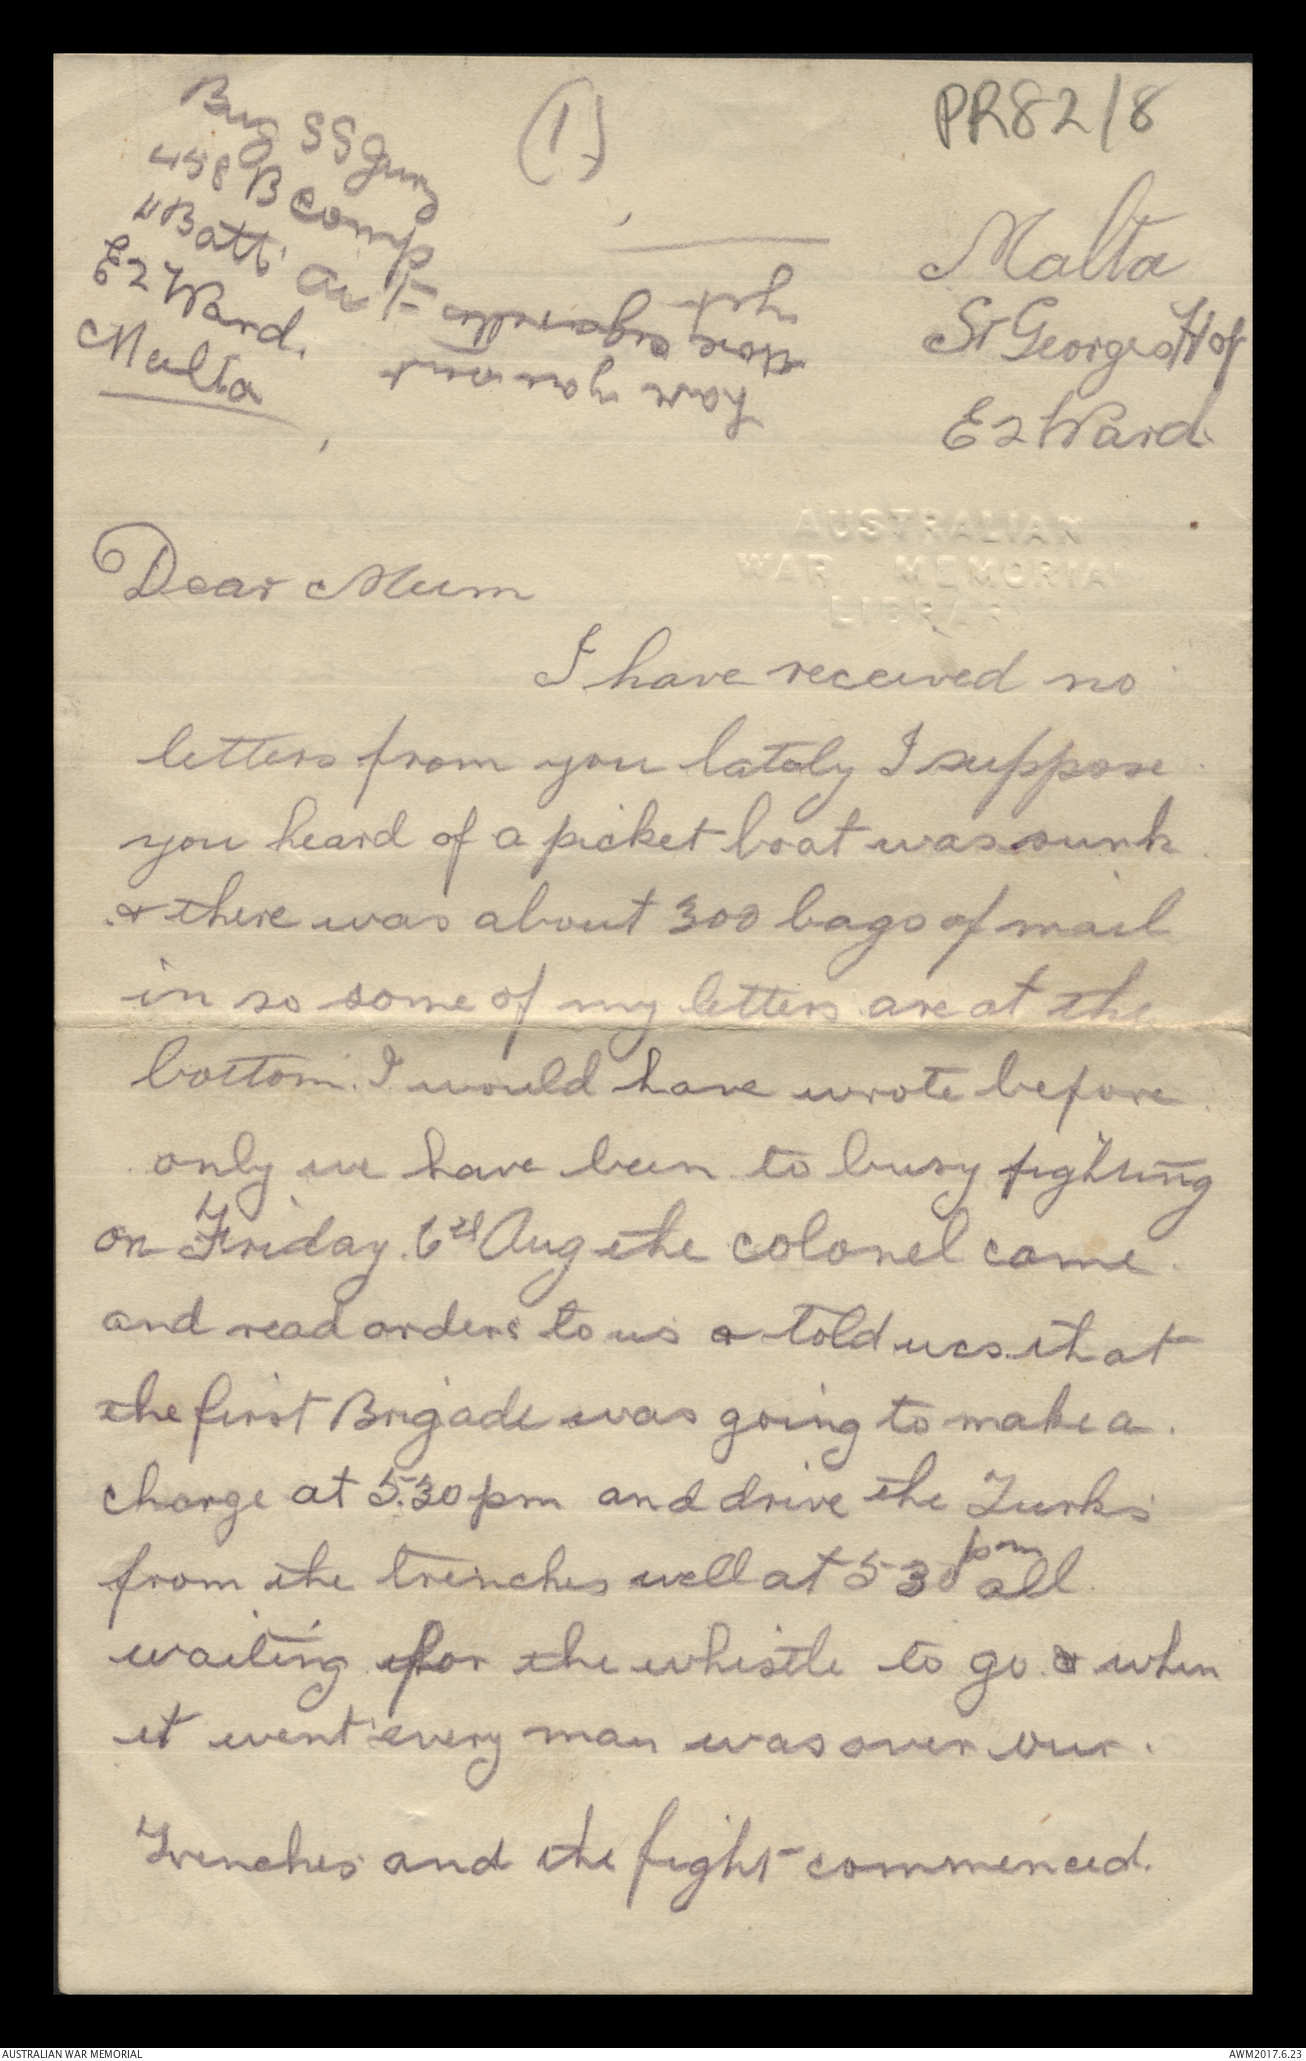 (1)
PR82/8
Bug S S
458 B Comp
Batt.
E2 Ward.
Malta
have you sent
more
yet
Malta
St Georges Hos
E2 Ward.
AUSTRALIAN
WAR MEMORIAL
LIBRARY
Dear Mum
I have received no
letters from you lately I suppose
you heard of a picket boat was sunk
& there was about 300 bags of mail
in so some of my letters are at the
bottom. I would have wrote before
only we have been to busy fighting
on Friday 6th Aug the colonel came
and read orders to us & told us that
the first Brigade was going to make a
charge at 5.30 pm and drive the Turks
from the trenches well at 5 30 pm all
waiting for the whistle to go & when
it went every man was over our
Trenches and the fight commenced.
AUSTRALIAN WAR MEMORIAL
AWM2017.6.23